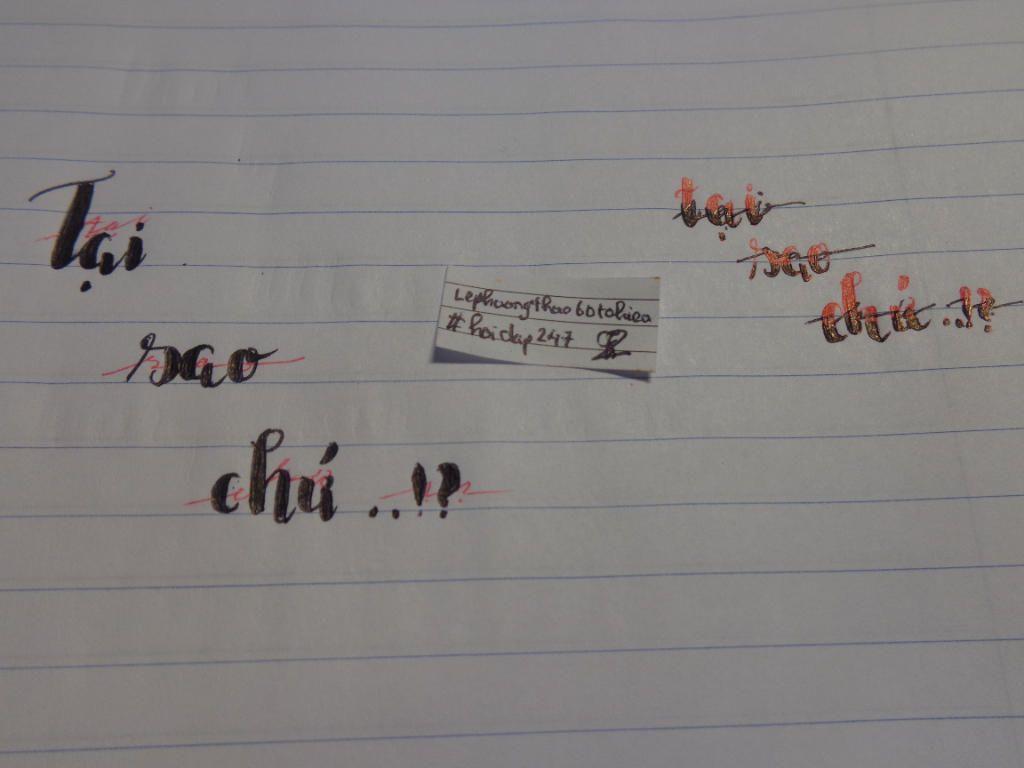 Tại
sao
chứ ..!?
Lephuongthao6btohieu
#hoidap247
tại
sao
chứ .!?